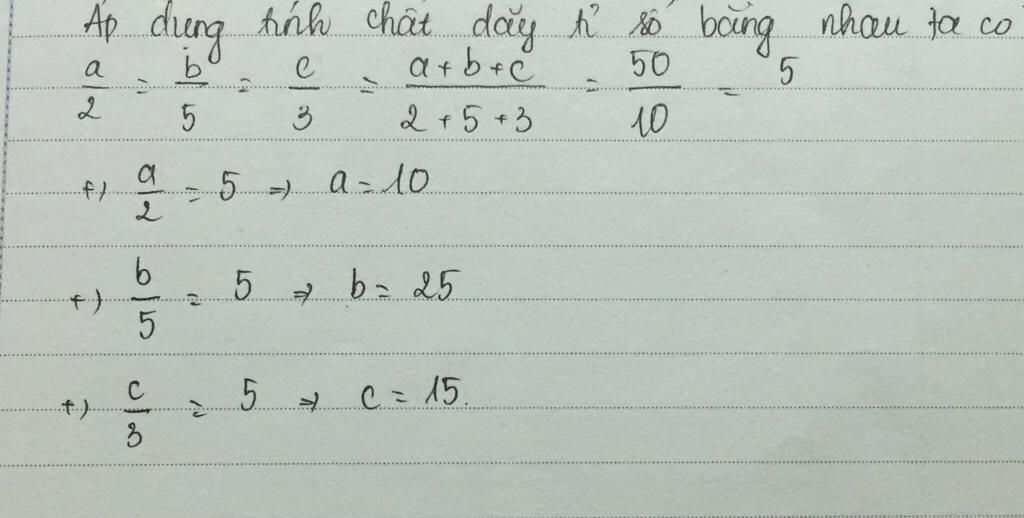 Áp dụng tính chất dãy tỉ số bằng nhau ta có
a/2 = b/5 = c/3 = (a+b+c)/(2+5+3) = 50/10 = 5
+) a/2 = 5 => a = 10
+) b/5 = 5 => b = 25
+) c/3 = 5 => c = 15.